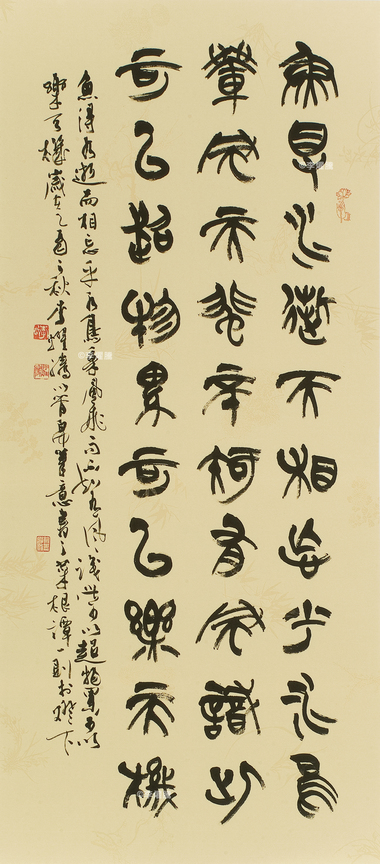 魚得水逝而相忘乎水鳥
乘風飛而不知有風識此
可以超物累可以樂天機
魚得水逝而相忘乎水鳥乘風飛而不知有風識此可以超物累可以
樂天機歲在乙酉之秋李耀濤以骨帛筆意書之菜根譚一則於燈下